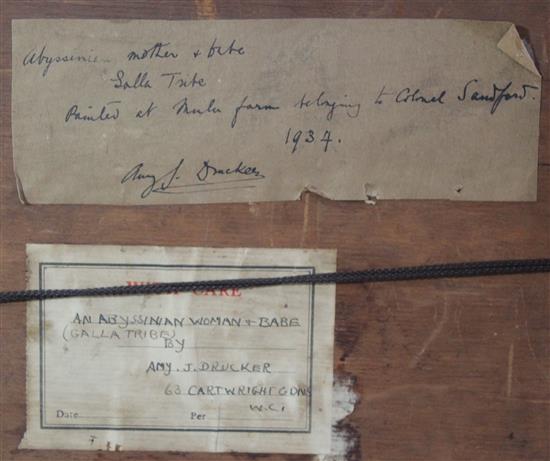 Abyssinian mother + babe
Galla Tribe
Painted at Mulu farm belonging to Colonel Sandford.
1937.
Amy J. Drucker
WITH CARE
AN ABYSSINIAN WOMAN + BABE
(GALLA TRIBE)
BY
AMY. J. DRUCKER
63 CARTWRIGHT GDNS
W.C.1
Date Per